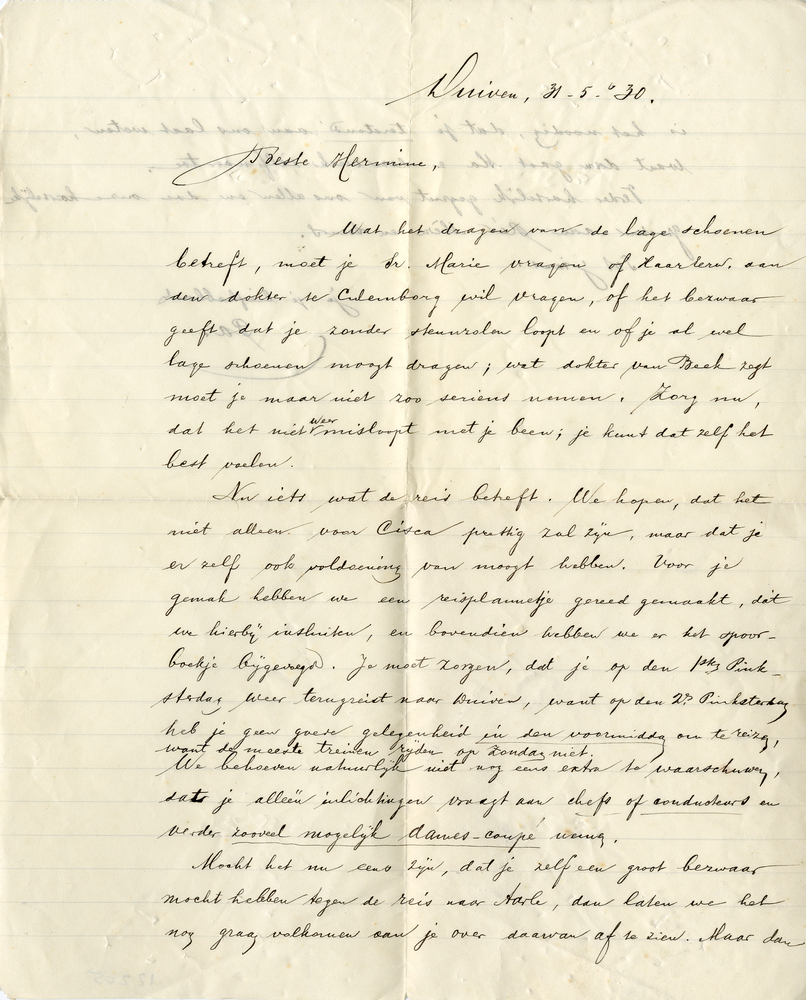 Duiven, 31-5-'30.
Beste Hermine,
Wat het dragen van de lage schoenen
betreft, moet je Sr. Marie vragen of Haar Eerw. aan
den dokter te Culemborg wil vragen, of het bezwaar
geeft dat je zonder steunzolen loopt en of je al wel
lage schoenen moogt dragen; wat dokter van Beek zegt
moet je maar niet zoo serieus nemen. Zorg nu,
dat het niet weer misloopt met je been; je kunt dat zelf het
best voelen.
Nu iets wat de reis betreft. We hopen, dat het
niet alleen voor Cisca prettig zal zijn, maar dat je
er zelf ook voldoening van moogt hebben. Voor je
gemak hebben we een reisplannetje gereed gemaakt, dat
we hierbij insluiten, en bovendien hebben we er het spoor-
boekje bijgevoegd. Je moet zorgen, dat je op den 1sten Pink-
sterdag weer terugreist naar Duiven, want op den 2en Pinksterdag
heb je geen goede gelegenheid in den voormiddag om te reizen,
want de meeste treinen rijden op Zondag niet.
We behoeven natuurlijk niet nog eens extra te waarschuwen,
dat je alleen inlichtingen vraagt aan chefs of conducteurs en
verder zooveel mogelijk dames-coupé neemt.
Mocht het nu eens zijn, dat je zelf een groot bezwaar
mocht hebben tegen de reis naar Aarle, dan laten we het
nog graag volkomen aan je over daarvan af te zien. Maar dan